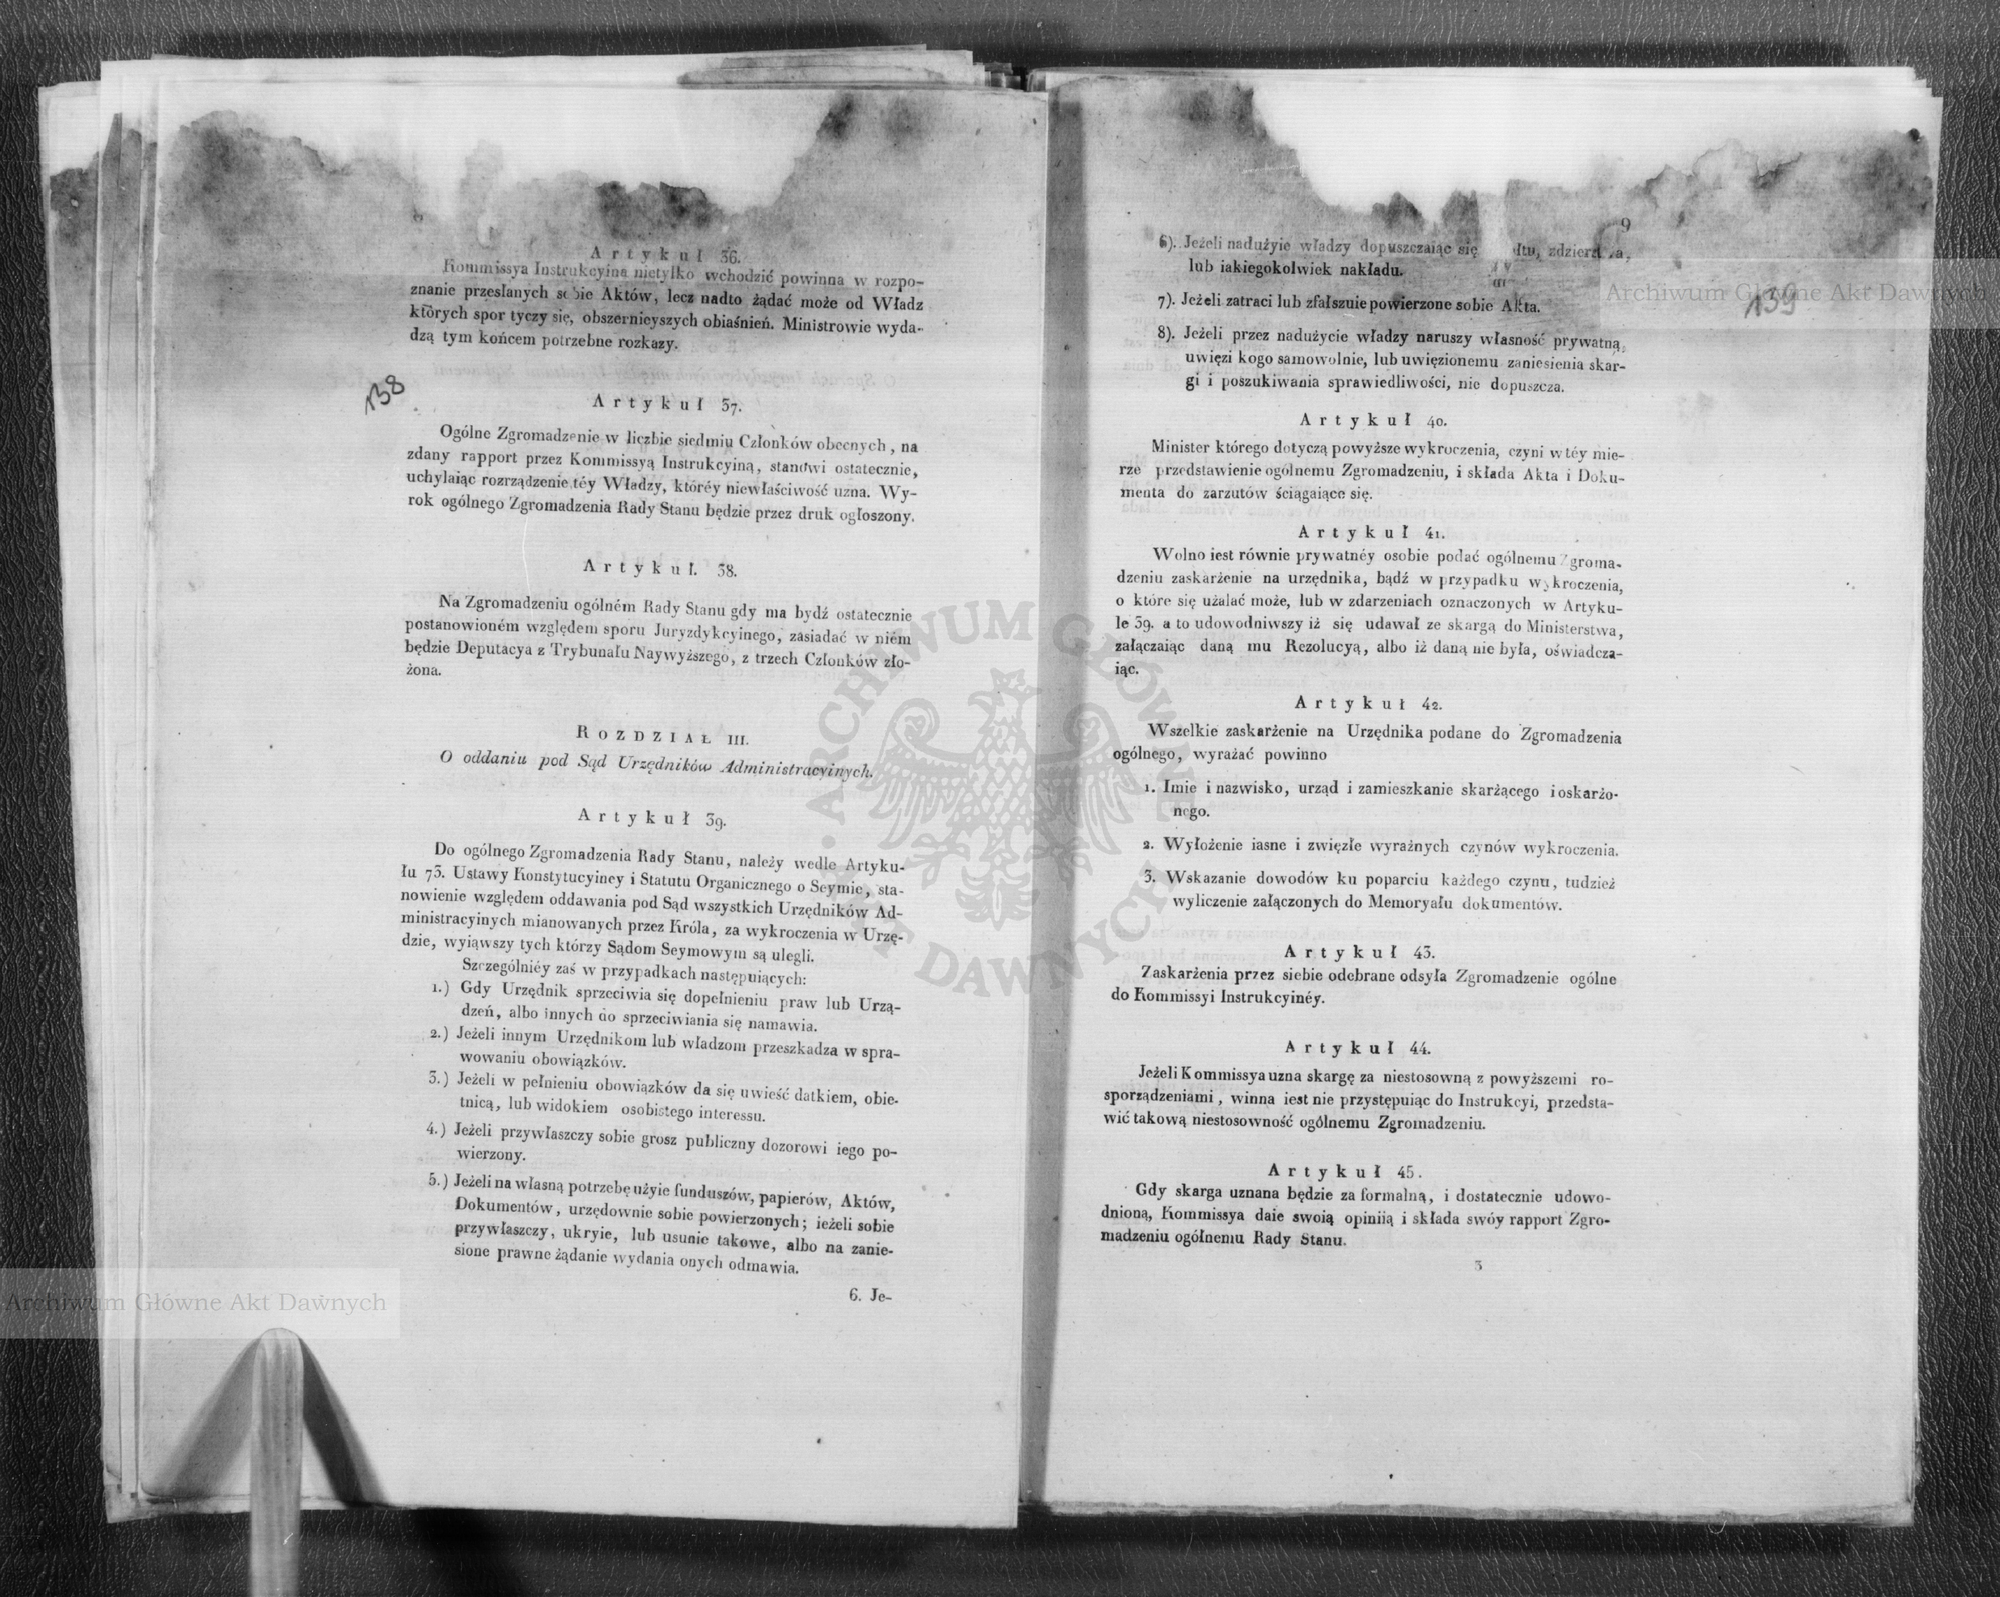 Artykuł 36.
Kommissya Instrukcyina nietylko wchodzić powinna w rozpo-
znanie przesłanych sobie Aktów, lecz nadto żądać może od Władz
których spor tyczy się, obszernieyszych obiaśnień. Ministrowie wyda-
dzą tym końcem potrzebne rozkazy.
138
Artykuł 37.
Ogólne Zgromadzenie w liczbie siedmiu Członków obecnych, na
zdany rapport przez Kommissyą Instrukcyiną, stanowi ostatecznie,
uchylaiąc rozrządzenie téy Władzy, któréy niewłaściwość uzna. Wy-
rok ogólnego Zgromadzenia Rady Stanu będzie przez druk ogłoszony.
Artykuł. 38.
Na Zgromadzeniu ogólném Rady Stanu gdy ma bydź ostatecznie
postanowioném względem sporu Juryzdykcyinego, zasiadać w niém
będzie Deputacya z Trybunału Naywyższego, z trzech Członków zło-
żona.
ROZDZIAŁ III.
O oddaniu pod Sąd Urzędników Administracyinych.
Artykuł 39.
Do ogólnego Zgromadzenia Rady Stanu, należy wedle Artyku-
łu 73. Ustawy Konstytucyiney i Statutu Organicznego o Seymie, sta-
nowienie względem oddawania pod Sąd wszystkich Urzędników Ad-
ministracyinych mianowanych przez Króla, za wykroczenia w Urzę-
dzie, wyiąwszy tych którzy Sądom Seymowym są ulegli.
Szczególniéy zaś w przypadkach następuiących:
1.) Gdy Urzędnik sprzeciwia się dopełnieniu praw lub Urzą-
dzeń, albo innych do sprzeciwiania się namawia.
2.) Jeżeli innym Urzędnikom lub władzom przeszkadza w spra-
wowaniu obowiązków.
3.) Jeżeli w pełnieniu obowiązków da się uwieść datkiem, obie-
tnicą, lub widokiem osobistego interessu.
4.) Jeżeli przywłaszczy sobie grosz publiczny dozorowi iego po-
wierzony.
5.) Jeżeli na własną potrzebę użyie funduszów, papierów, Aktów,
Dokumentów, urzędownie sobie powierzonych; ieżeli sobie
przywłaszczy, ukryie, lub usunie takowe, albo na zanie-
sione prawne żądanie wydania onych odmawia.
6. Je-
Archiwum Główne Akt Dawnych
9
6). Jeżeli nadużyie władzy dopuszczaiąc się
lub iakiegokolwiek nakładu.
7). Jeżeli zatraci lub zfałszuie powierzone sobie Akta.
Archiwum Główne Akt Dawnych
139
8). Jeżeli przez nadużycie władzy naruszy własność prywatną,
uwięzi kogo samowolnie, lub uwięzionemu zaniesienia skar-
gi i poszukiwania sprawiedliwości, nie dopuszcza.
Artykuł 40.
Minister którego dotyczą powyższe wykroczenia, czyni w téy mie-
rze przedstawienie ogólnemu Zgromadzeniu, i składa Akta i Doku-
menta do zarzutów ściągaiące się.
Artykuł 41.
Wolno iest równie prywatnéy osobie podać ogólnemu Zgroma-
dzeniu zaskarżenie na urzędnika, bądź w przypadku wykroczenia,
o które się użalać może, lub w zdarzeniach oznaczonych w Artyku-
le 39. a to udowodniwszy iż się udawał ze skargą do Ministerstwa,
załączaiąc daną mu Rezolucyą, albo iż daną nie była, oświadcza-
iąc.
Artykuł 42.
Wszelkie zaskarżenie na Urzędnika podane do Zgromadzenia
ogólnego, wyrażać powinno
1. Imie i nazwisko, urząd i zamieszkanie skarżącego i oskarżo-
nego.
2. Wyłożenie iasne i zwięzłe wyraźnych czynów wykroczenia.
3. Wskazanie dowodów ku poparciu każdego czynu, tudzież
wyliczenie załączonych do Memoryału dokumentów.
Artykuł 43.
Zaskarżenia przez siebie odebrane odsyła Zgromadzenie ogólne
do Kommissyi Instrukcyinéy.
Artykuł 44.
Jeżeli Kommissya uzna skargę za niestosowną z powyższemi ro-
sporządzeniami, winna iest nie przystępuiąc do Instrukcyi, przedsta-
wić takową niestosowność ogólnemu Zgromadzeniu.
Artykuł 45.
Gdy skarga uznana będzie za formalną, i dostatecznie udowo-
dnioną, Kommissya daie swoią opiniią i składa swóy rapport Zgro-
madzeniu ogólnemu Rady Stanu.
3
ARCHIWUM GŁÓWNE AKT DAWNYCH